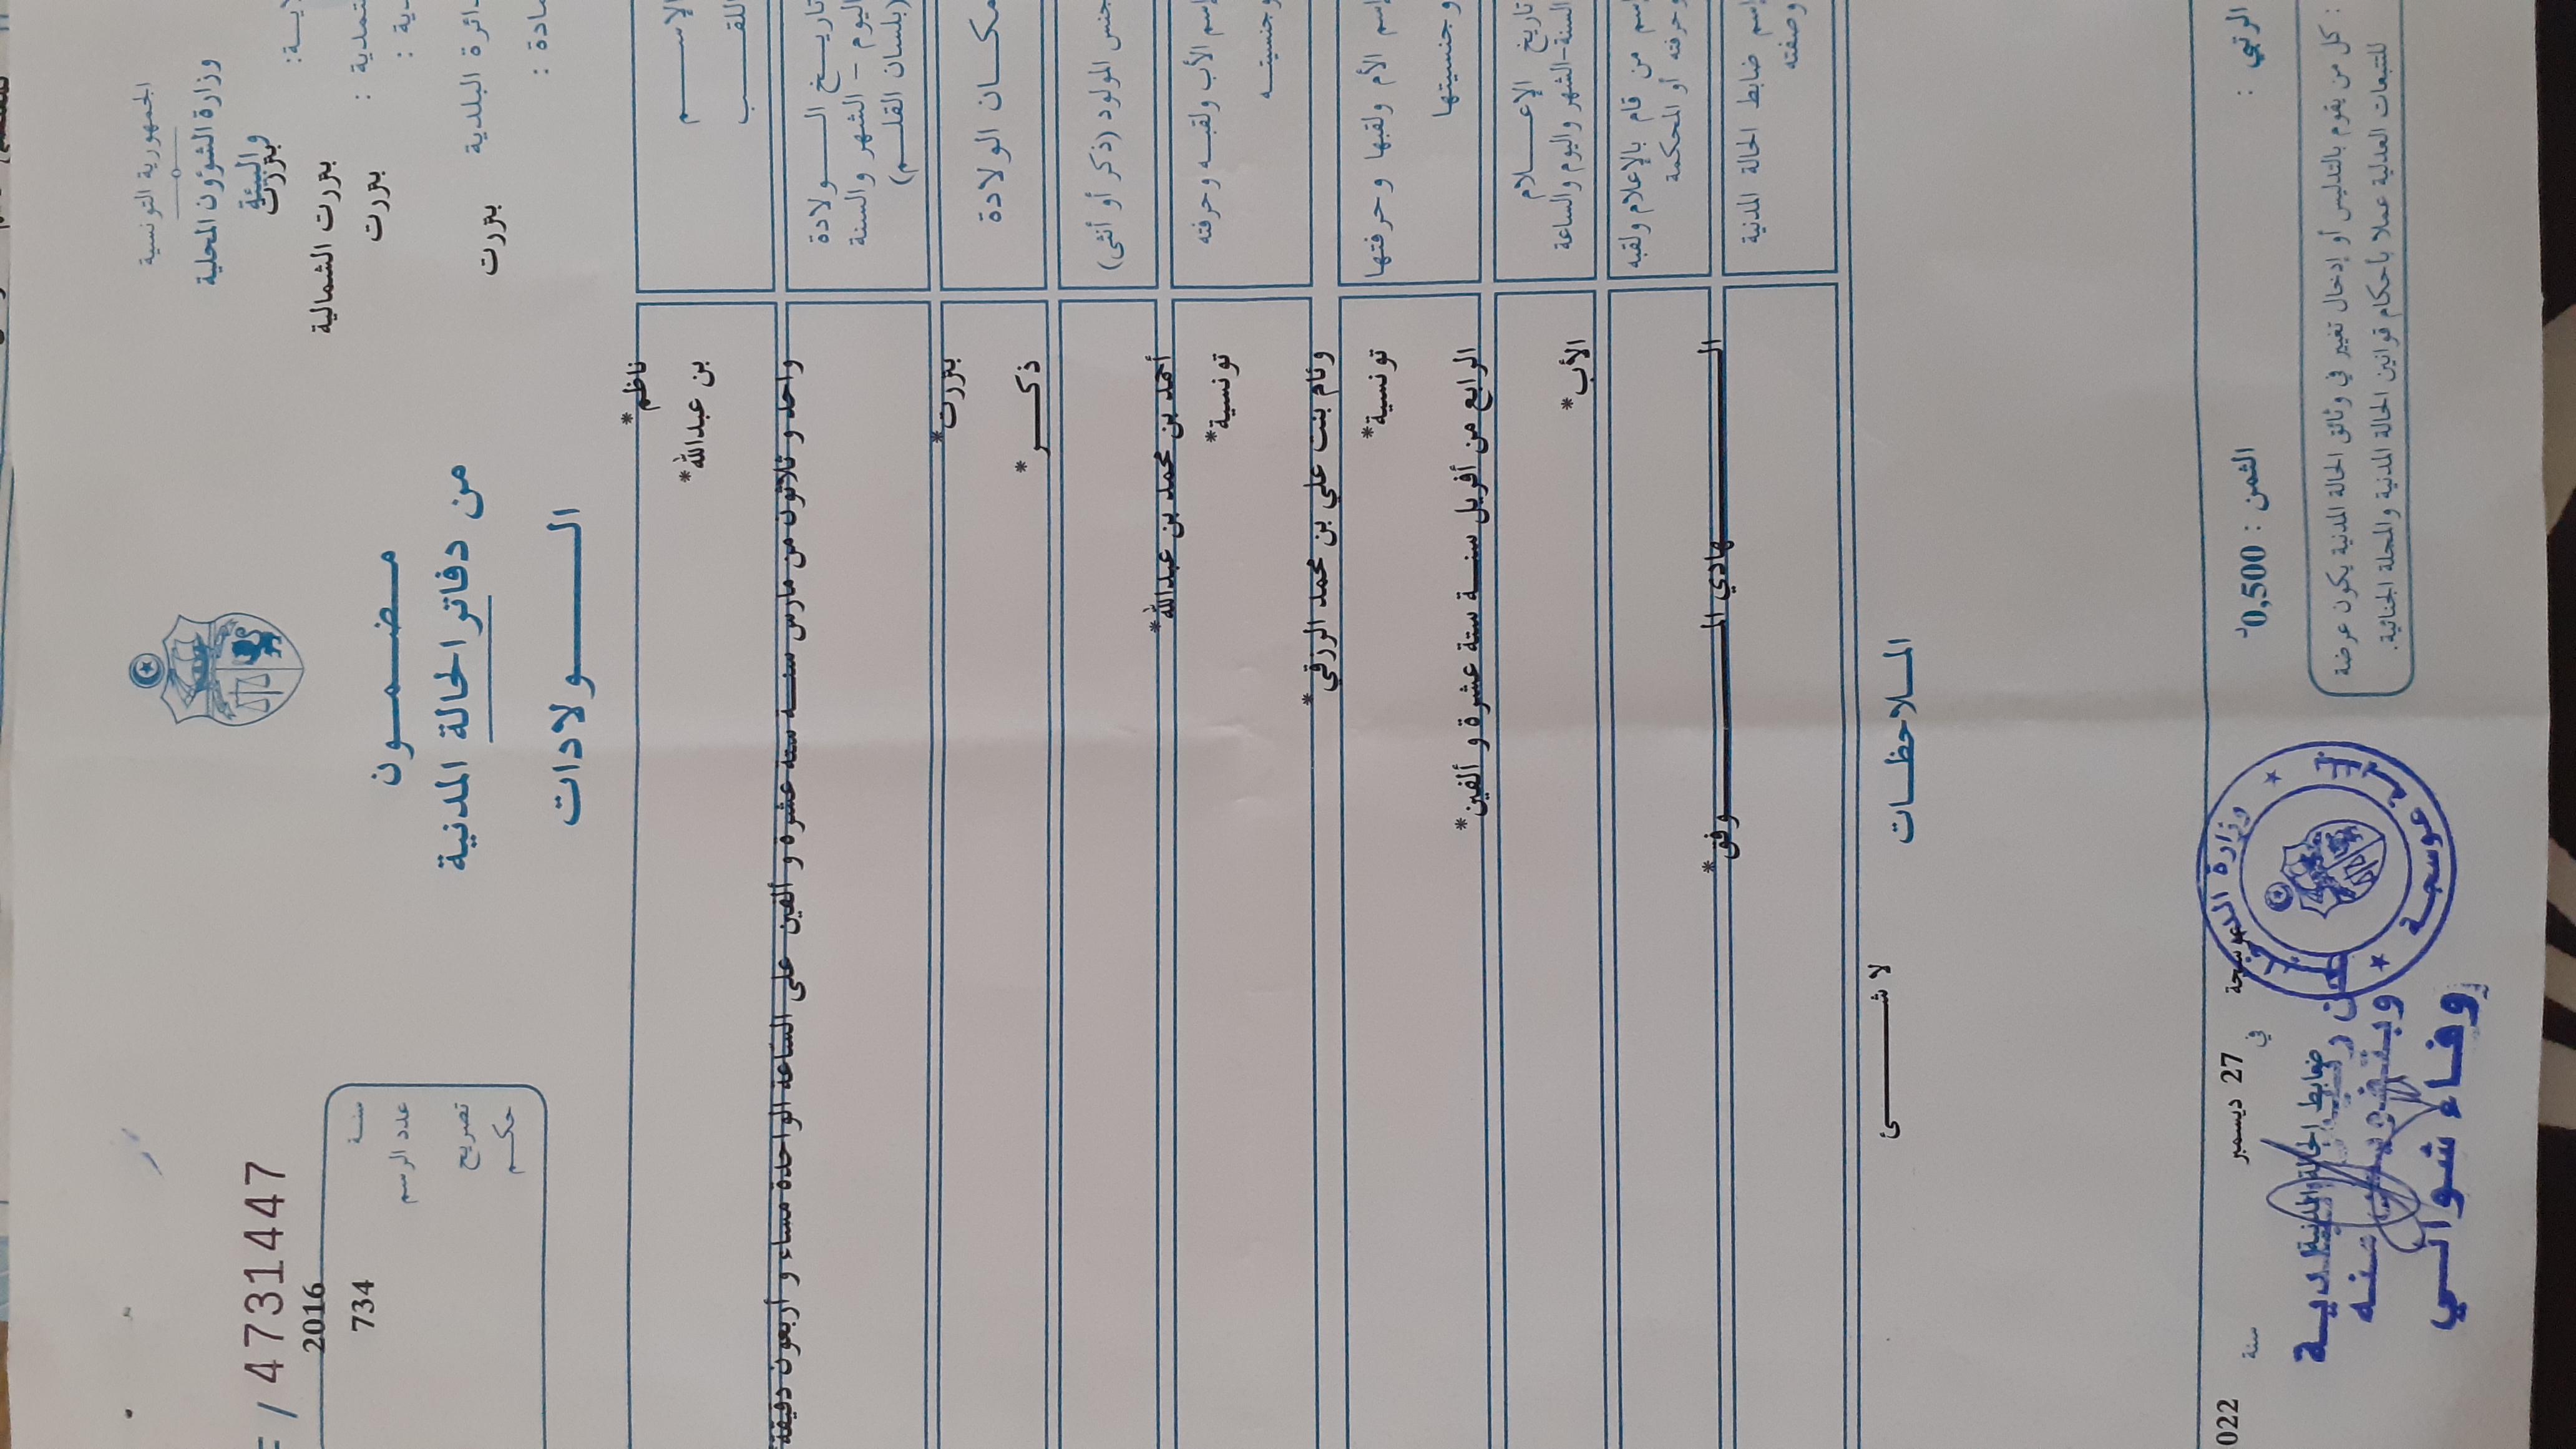 الجمهورية التونسية
وزارة الشؤون المحلية
والبيئة
بنزرت
بنزرت الشمالية
بنزرت
دائرة البلدية
بنزرت
/ 4731447
سنة 2016
عدد الرسم 734
تصريح
حكم
مضمون
من دفاتر الحالة المدنية
الولادات
الإسم
اللقب
ناظم*
بن عبدالله*
تاريخ الولادة
اليوم - الشهر والسنة
(بلسان القلم)
واحد و ثلاثون من مارس سنة ستة عشرة و ألفين على الساعة الواحدة مساء و أربعون دقيقة
مكان الولادة
بنزرت*
جنس المولود (ذكر أو أنثى)
ذكر*
إسم الأب ولقبه وحرفته
وجنسيته
أحمد بن محمد بن عبدالله*
تونسية*
إسم الأم ولقبها وحرفتها
وجنسيتها
وئام بنت علي بن محمد الرزقي*
تونسية*
تاريخ الإعلام
السنة-الشهر واليوم والساعة
الرابع من أفريل سنة ستة عشرة و ألفين*
إسم من قام بالإعلام ولقبه
وحرفته أو المحكمة
الأب*
إسم ضابط الحالة المدنية
وصفته
الهادي الموفق*
الملاحظات
لا شئ
الثمن : 0,500د
العوسجة في 27 ديسمبر سنة
022
ضابط الحالة المدنية
وبتفويض منه
وفاء شوالي
: كل من يقوم بالتدليس أو إدخال تغيير في وثائق الحالة المدنية يكون عرضة
للتتبعات العدلية عملا بأحكام قوانين الحالة المدنية والمجلة الجنائية.